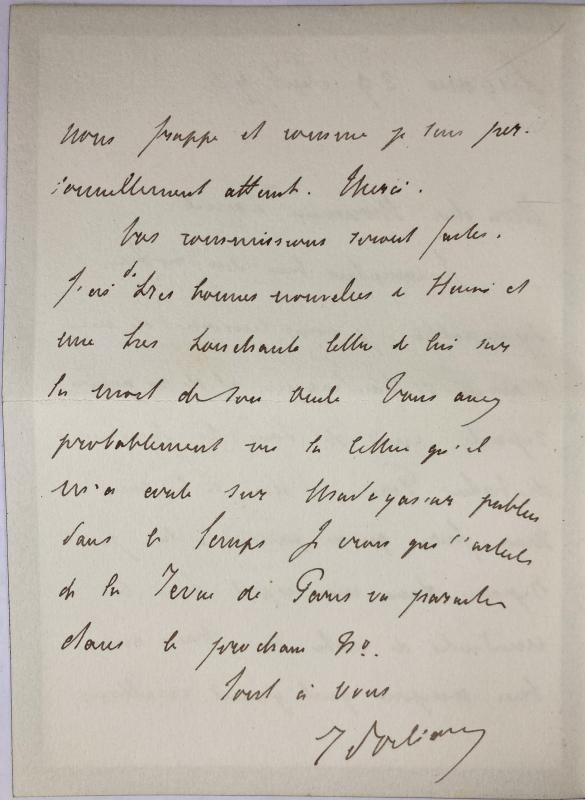 nous frappe et comme je suis per-
sonnellement atteint. Merci.
Vos commissions seront faites.
J'ai de très bonnes nouvelles d Henri et
une très touchante lettre de lui sur
la mort de son oncle Vous avez
probablement vu la lettre qu'il
m'a écrite sur Madagascar publiée
dans le Temps Je crois que l'article
de la Revue de Paris va paraître
dans le prochain No.
Tout à vous
d'Orléans